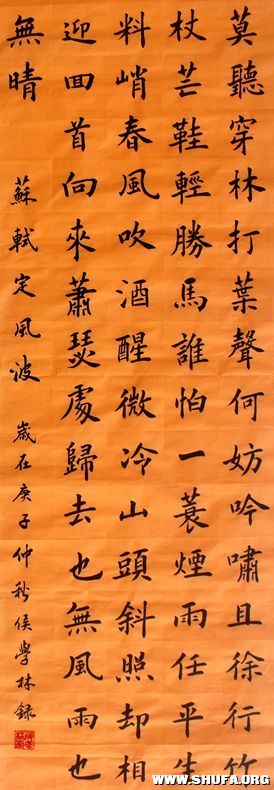 莫聽穿林打葉聲何妨吟嘯且徐行竹
杖芒鞋輕勝馬誰怕一蓑煙雨任平生
料峭春風吹酒醒微冷山頭斜照却相
迎回首向來蕭瑟處歸去也無風雨也
無晴 蘇軾定風波 歲在庚子仲秋侯學林錄
WWW.SHUFA.ORG